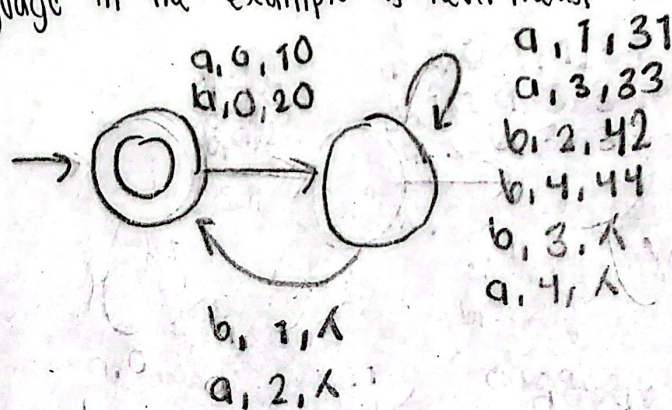 in the example is never
a, 0, 10
b, 0, 20
a, 1, 31
a, 3, 33
b, 2, 42
b, 4, 44
b, 3, λ
a, 4, λ
b, 1, λ
a, 2, λ